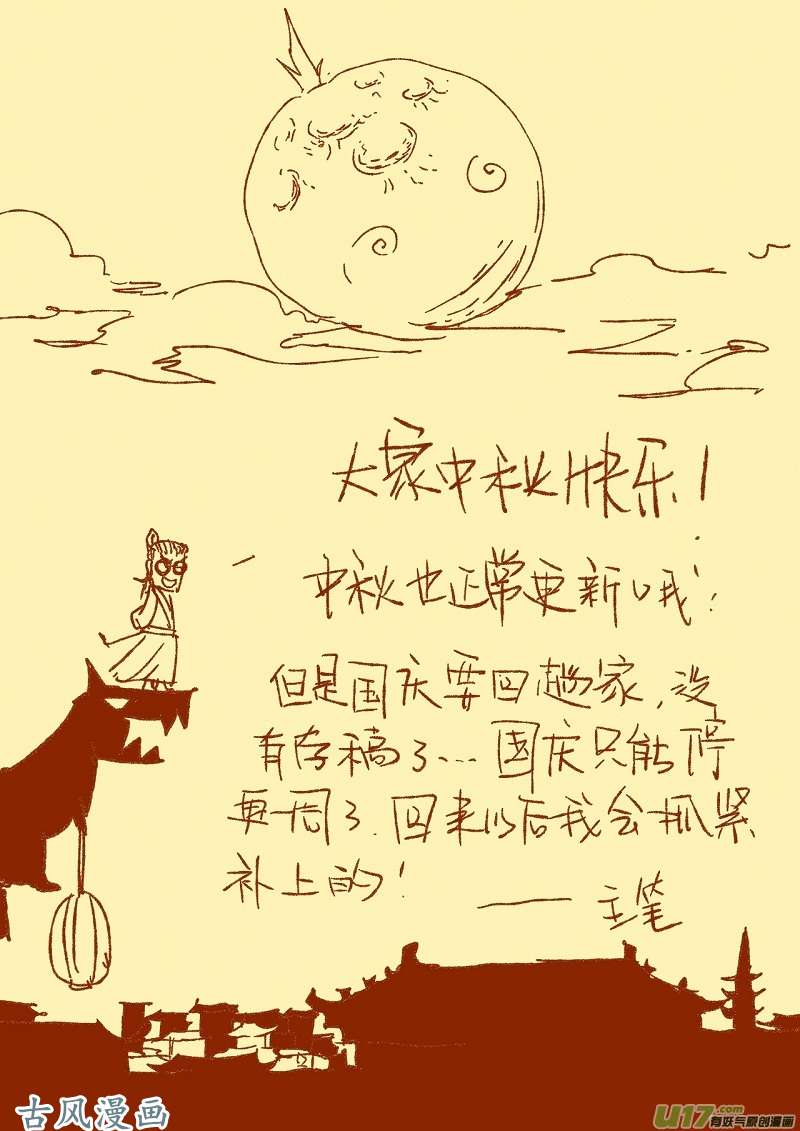 大家中秋快乐！
中秋也正常更新哦！
但是国庆要回趟家，没
有存稿了…国庆只能停
更一周了．回来以后我会抓紧
补上的！
——主笔
古风漫画
U17.com
有妖气原创漫画